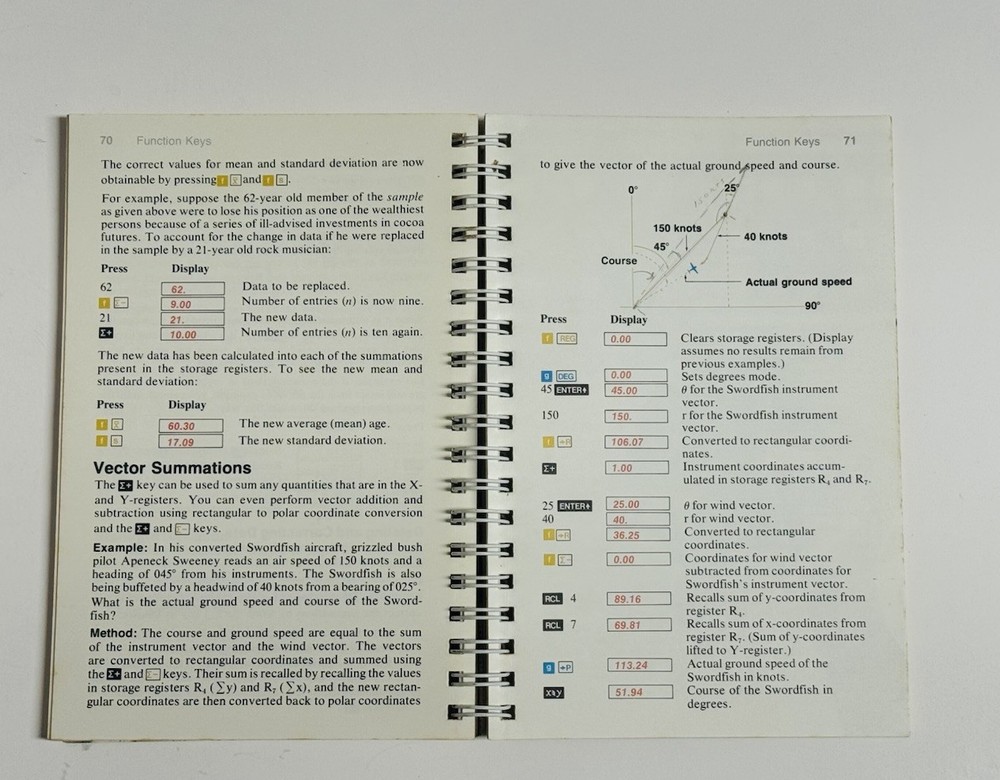 70 Function Keys
The correct values for mean and standard deviation are now
obtainable by pressing f x̄ and f s.
For example, suppose the 62-year old member of the sample
as given above were to lose his position as one of the wealthiest
persons because of a series of ill-advised investments in cocoa
futures. To account for the change in data if he were replaced
in the sample by a 21-year old rock musician:
Press Display
62 62. Data to be replaced.
f Σ− 9.00 Number of entries (n) is now nine.
21 21. The new data.
Σ+ 10.00 Number of entries (n) is ten again.
The new data has been calculated into each of the summations
present in the storage registers. To see the new mean and
standard deviation:
Press Display
f x̄ 60.30 The new average (mean) age.
f s 17.09 The new standard deviation.
Vector Summations
The Σ+ key can be used to sum any quantities that are in the X-
and Y-registers. You can even perform vector addition and
subtraction using rectangular to polar coordinate conversion
and the Σ+ and Σ− keys.
Example: In his converted Swordfish aircraft, grizzled bush
pilot Apeneck Sweeney reads an air speed of 150 knots and a
heading of 045° from his instruments. The Swordfish is also
being buffeted by a headwind of 40 knots from a bearing of 025°.
What is the actual ground speed and course of the Sword-
fish?
Method: The course and ground speed are equal to the sum
of the instrument vector and the wind vector. The vectors
are converted to rectangular coordinates and summed using
the Σ+ and Σ− keys. Their sum is recalled by recalling the values
in storage registers R₄ (∑y) and R₇ (∑x), and the new rectan-
gular coordinates are then converted back to polar coordinates
Function Keys 71
to give the vector of the actual ground speed and course.
0° 25°
150 knots
40 knots
45°
Course
Actual ground speed
90°
Press Display
f REG 0.00 Clears storage registers. (Display
assumes no results remain from
previous examples.)
g DEG 0.00 Sets degrees mode.
45 ENTER↑ 45.00 θ for the Swordfish instrument
vector.
150 150. r for the Swordfish instrument
vector.
f →R 106.07 Converted to rectangular coordi-
nates.
Σ+ 1.00 Instrument coordinates accum-
ulated in storage registers R₄ and R₇.
25 ENTER↑ 25.00 θ for wind vector.
40 40. r for wind vector.
f →R 36.25 Converted to rectangular
coordinates.
f Σ− 0.00 Coordinates for wind vector
subtracted from coordinates for
Swordfish's instrument vector.
RCL 4 89.16 Recalls sum of y-coordinates from
register R₄.
RCL 7 69.81 Recalls sum of x-coordinates from
register R₇. (Sum of y-coordinates
lifted to Y-register.)
g →P 113.24 Actual ground speed of the
Swordfish in knots.
x⇄y 51.94 Course of the Swordfish in
degrees.